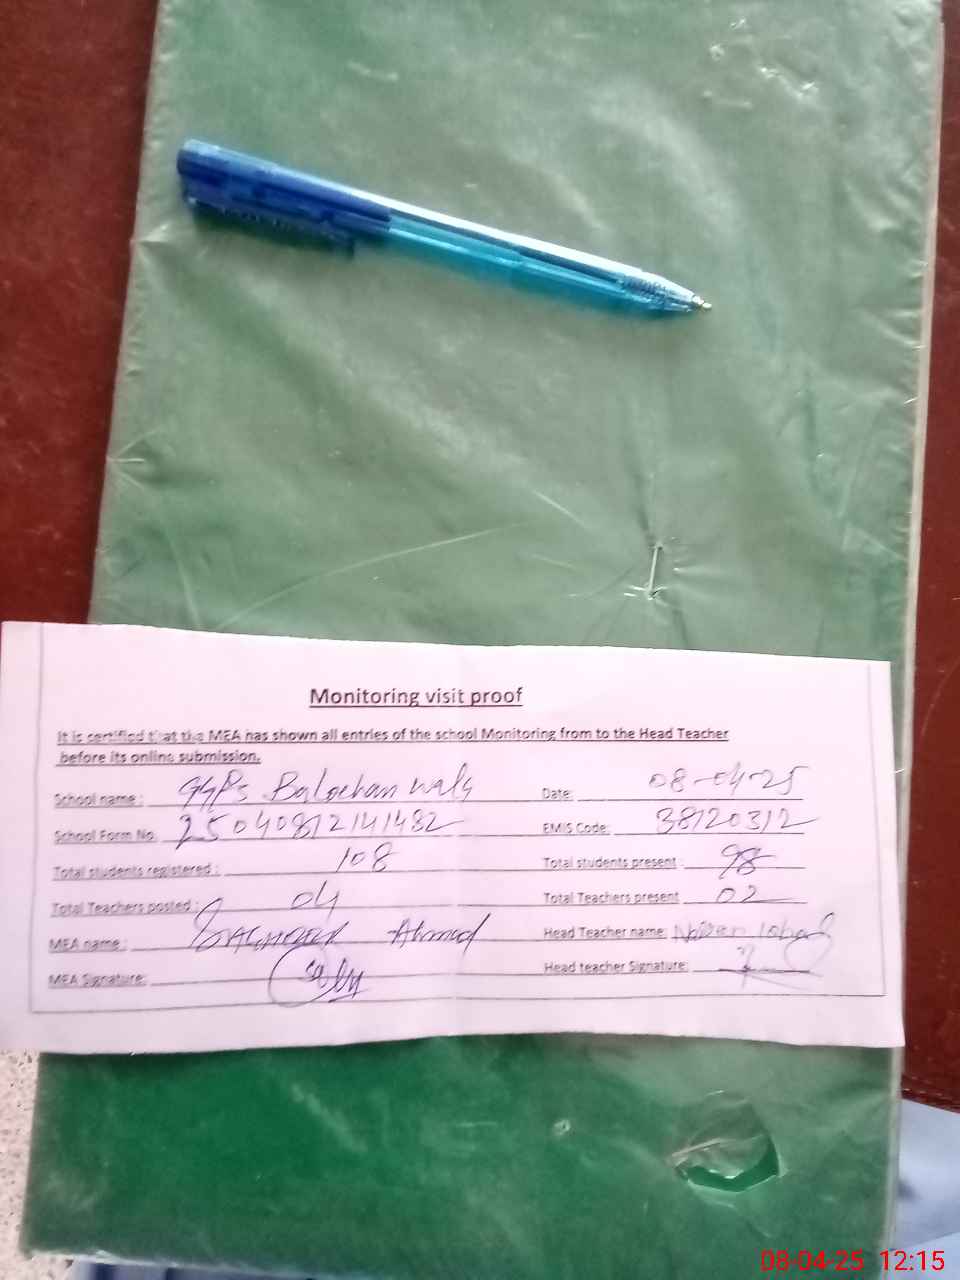 Monitoring visit proof
It is certified that the MEA has shown all entries of the school Monitoring from to the Head Teacher
before its online submission.
School name: GGPS Balochan wala Date: 08-04-25
School Form No. 25040812141482 EMIS Code: 38120312
Total students registered: 108 Total students present: 98
Total Teachers posted: 04 Total Teachers present 02
MEA name: Ahmad Head Teacher name:
MEA Signature: Head teacher Signature:
08-04-25 12:15